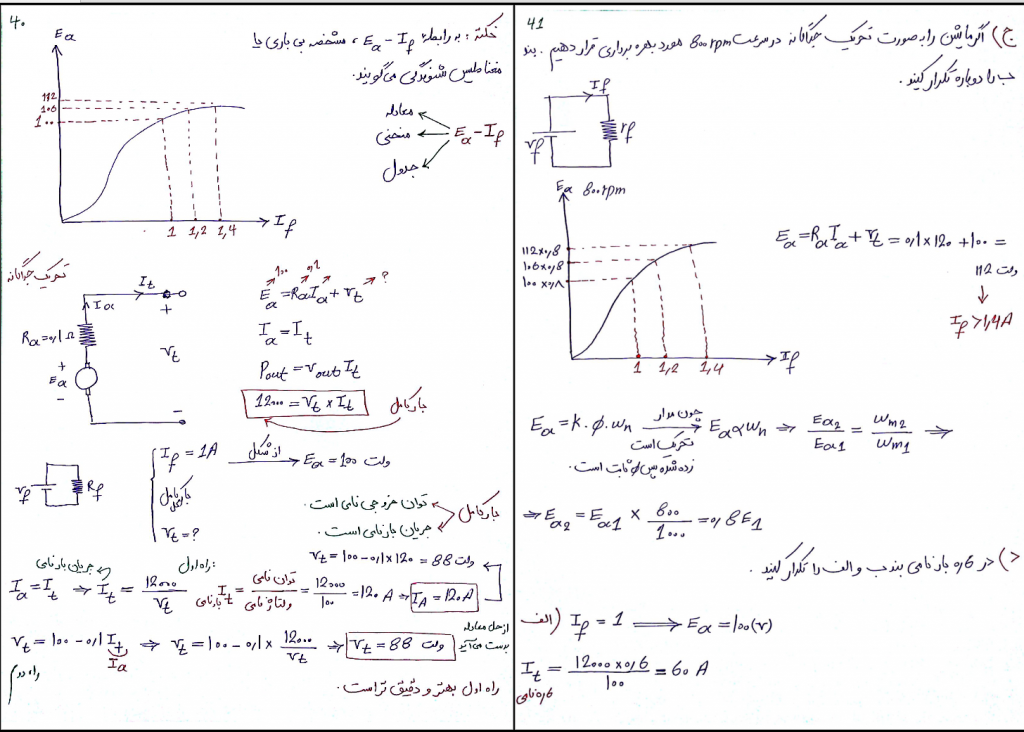 ۴۰
نکته : به رابطه‌ٔ Ea - If ، مشخصه بی باری یا
مغناطیس شوندگی می‌گویند.
Ea - If
معادله
منحنی
جدول
Ea
112
106
100
1
1,2
1,4
If
تحریک جداگانه
It
Ia
Ra=0,1 Ω
+
Ea
-
+
Vt
-
100 0,1 ?
Ea = Ra Ia + Vt
Ia = It
Pout = Vout It
12000 = Vt × It
بار کامل
Vf
Rf
If = 1A از شکل Ea = 100 ولت
بار کامل
Vt = ?
بار کامل
توان خروجی نامی است.
جریان بار نامی است.
Vt = 100 - 0,1 × 120 = 88 ولت
جریان بار نامی
راه اول:
Ia = It ⇒ It = 12000 / Vt
It بار نامی = توان نامی / ولتاژ نامی = 12000 / 100 = 120 A ⇒ IA = 120 A
Vt = 100 - 0,1 It ⇒ Vt = 100 - 0,1 × 12000 / Vt ⇒ Vt = 88 ولت
Ia
از حل معادله
بدست می‌آید
راه دوم
راه اول بهتر و دقیق تر است.
41
ج) اگر ماشین را به صورت تحریک جداگانه در سرعت 800 rpm مورد بهره برداری قرار دهیم . بند
ب را دوباره تکرار کنید.
If
Vf
rf
Ea 800 rpm
112×0,8
106×0,8
100×0,8
1
1,2
1,4
If
Ea = Ra Ia + Vt = 0,1 × 120 + 100 =
112 ولت
↓
If > 1,4 A
Ea = k . φ . ωn چون مدار تحریک است Ea α ωn ⇒ Ea2 / Ea1 = ωm2 / ωm1 ⇒
زده شده پس φ ثابت است.
⇒ Ea2 = Ea1 × 800 / 1000 = 0,8 E1
د) در 0,6 بار نامی بند ب و الف را تکرار کنید .
الف) If = 1 ⟹ Ea = 100 (V)
It = 12000 × 0,6 / 100 = 60 A
0,6 نامی